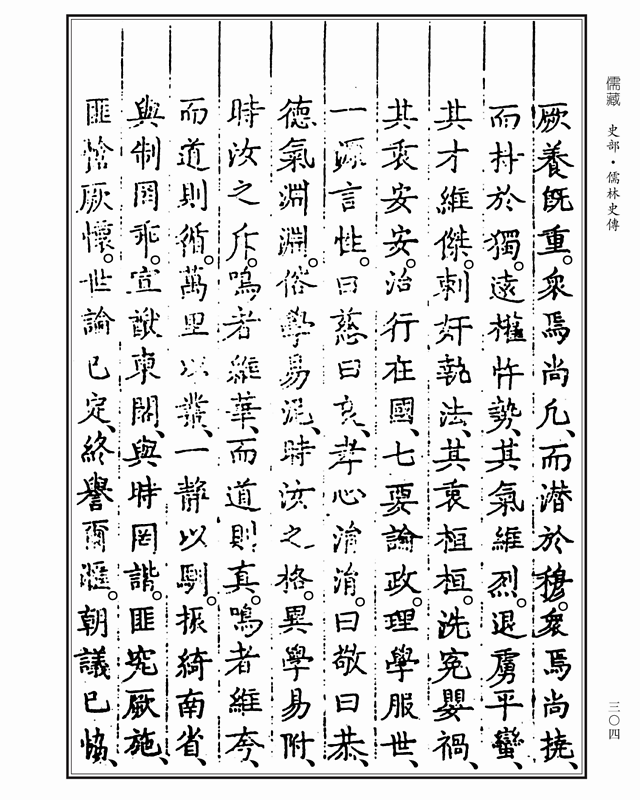 儒藏 史部・儒林史傳
厥養旣重。衆焉尚凢、而潛於穆。衆焉尚撓、
而朴於獨。遠權忤勢、其氣維烈。退虜平蠻、
其才維傑。刺奸執法、其衷桓桓。洗冤嬰禍、
其衷安安。治行在國、七要論政。理學服世、
一源言性。曰慈曰哀、孝心淯淯。曰敬曰恭、
德氣淵淵。俗學易混、時汝之格。異學易附、
時汝之斥。鳴者維華、而道則真。鳴者維夸、
而道則循。萬里以叢、一靜以馴。振綺南省、
與制罔乖。宣猷東閣、與時罔諧。匪究厥施、
匪愴厥懷。世論已定、終譽爾。朝議已、
三〇四